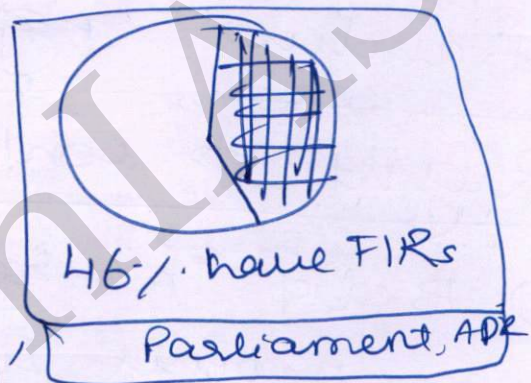 46%. have FIRs
Parliament, ADR